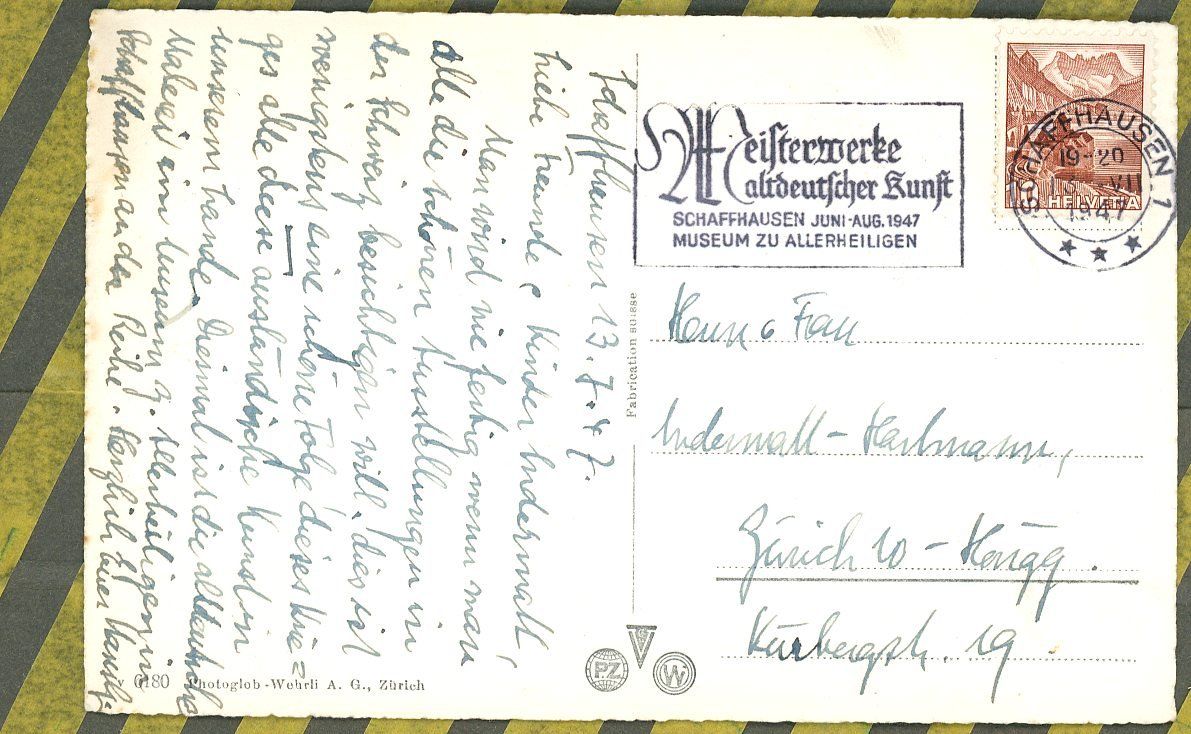 Schaffhausen 13.7.47.
Liebe Freunde & Kinder Inderwatt!
Man wird nie fertig wenn man
alle die schönen Ausstellungen in
der Schweiz besichtigen will. dies ist
wenigstens eine schöne Folge dieses Krie=
ges alle diese ausländische Kunst in
unserem Lande. Diesmal ist die altdeutsche
Malerei im Museum z. Allerheiligen in
Schaffhausen an der Reihe. Herzlich Euer
v 6180 Photoglob-Wehrli A. G., Zürich
Fabrication suisse
Meisterwerke
altdeutscher Kunst
SCHAFFHAUSEN JUNI-AUG. 1947
MUSEUM ZU ALLERHEILIGEN
SCHAFFHAUSEN 1
19-20
13. VII
1947
HELVETIA
Herrn & Frau
Hartmann,
Zürich 10 - Höngg.
Kürbergstr. 19.
P.Z.
W